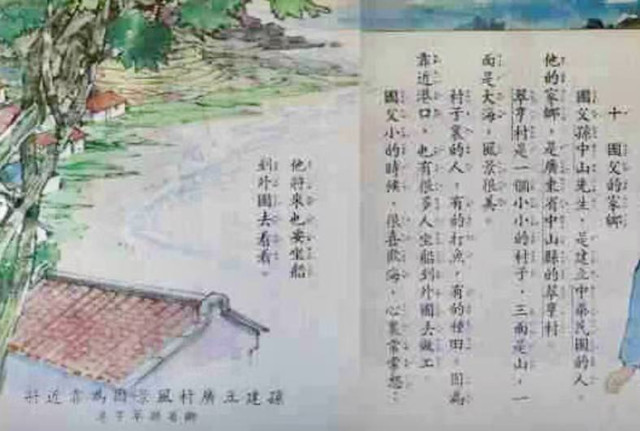 十 國父的家鄉
國父孫中山先生，是建立中華民國的人。
他的家鄉，是廣東省中山縣的翠亨村。
翠亨村是一個小小的村子，三面是山，一
面是大海，風景很美。
村子裏的人，有的打魚，有的種田。因為
靠近港口，也有很多人坐船到外國去做工。
國父小的時候，很喜歡海，心裏常常想：
他將來也要坐船
到外國去看看。
孫建立廣村風景國為靠近將
鄉省縣亨子是